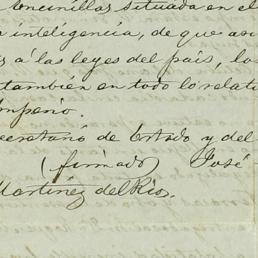 Concunillas situada en el
inteligencia, de que asi
á las leyes del pais, las
también en todo lo relati
Imperio.
Secretario de Estado y del
(firmado) José
Martinez del Rio.